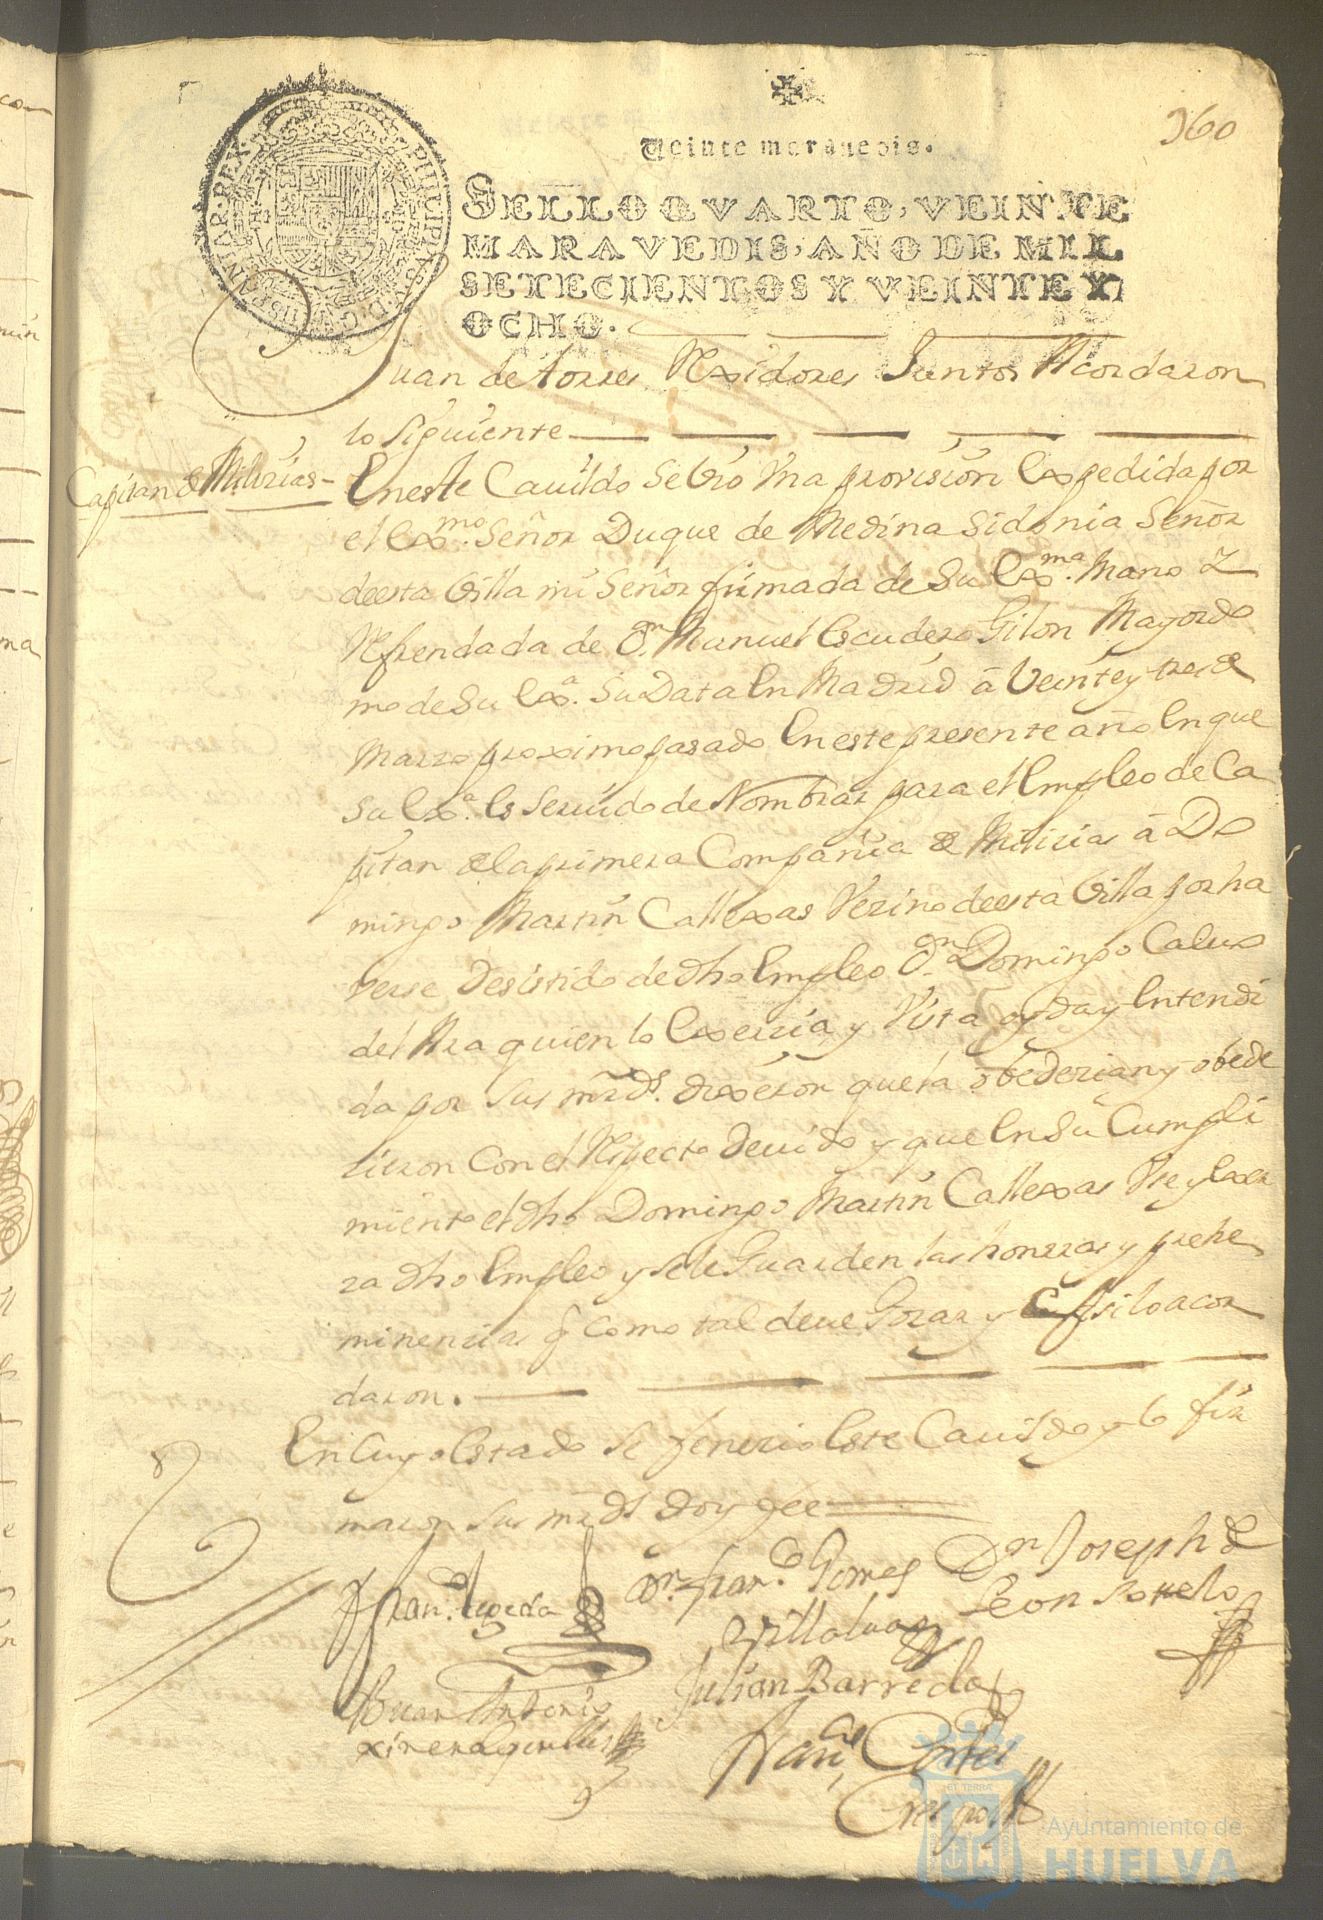 960
Veinte maravedis.
SELLO QVARTO, VEINTE
MARAVEDIS, AÑO DE MIL
SETECIENTOS Y VEINTE Y
OCHO.
PHILIPPUS V D G HISPANIAR REX
Juan de torres Rexidores Juntos Acordaron
lo siguiente
Capitan de Milizias - En este Cauildo se bio Vna provision Expedida por
el Exmo. Señor Duque de Medina Sidonia Señor
deesta Villa mi Señor firmada de Su Exma. Mano Y
Refrendada de Dn. Manuel Escudero Gilon Mayordo
mo de Su Exa. Su Data En Madrid à Veinte y tres de
Marzo proximo pasado En este presente año En que
Su Exa. Es Seruido de Nombrar para el Empleo de Ca
pitan de la primera Compañia de Milizias à Do
mingo Martin Callexas Vezino deesta Villa por ha
verse Desistido de dho Empleo Dn. Domingo Caluo
del Ara quien lo Exerzia, y Vista oyda y Entendi
da por Sus mrds. dixeron que la obedezian y obede
zieron Con el Respecto Deuido y que En Su Cumpli
miento el dho Domingo Martin Callexas Vse y Exer
za dho Empleo y se le Guarden las honrras y prehe
minenzias q como tal deue Gozar y assi lo acor
daron.
En Cuyo Estado se fenezio Este Cauildo y lo fir
maron Sus mrds doy fee
Franco. Cepeda Dn. Franco. Gomes Dn Joseph de
Villalua Leon Sotelo
Juan Antonio Julian Barreda
Franco Cortes
Crespo
ET TERRÆ
Ayuntamiento de
HUELVA